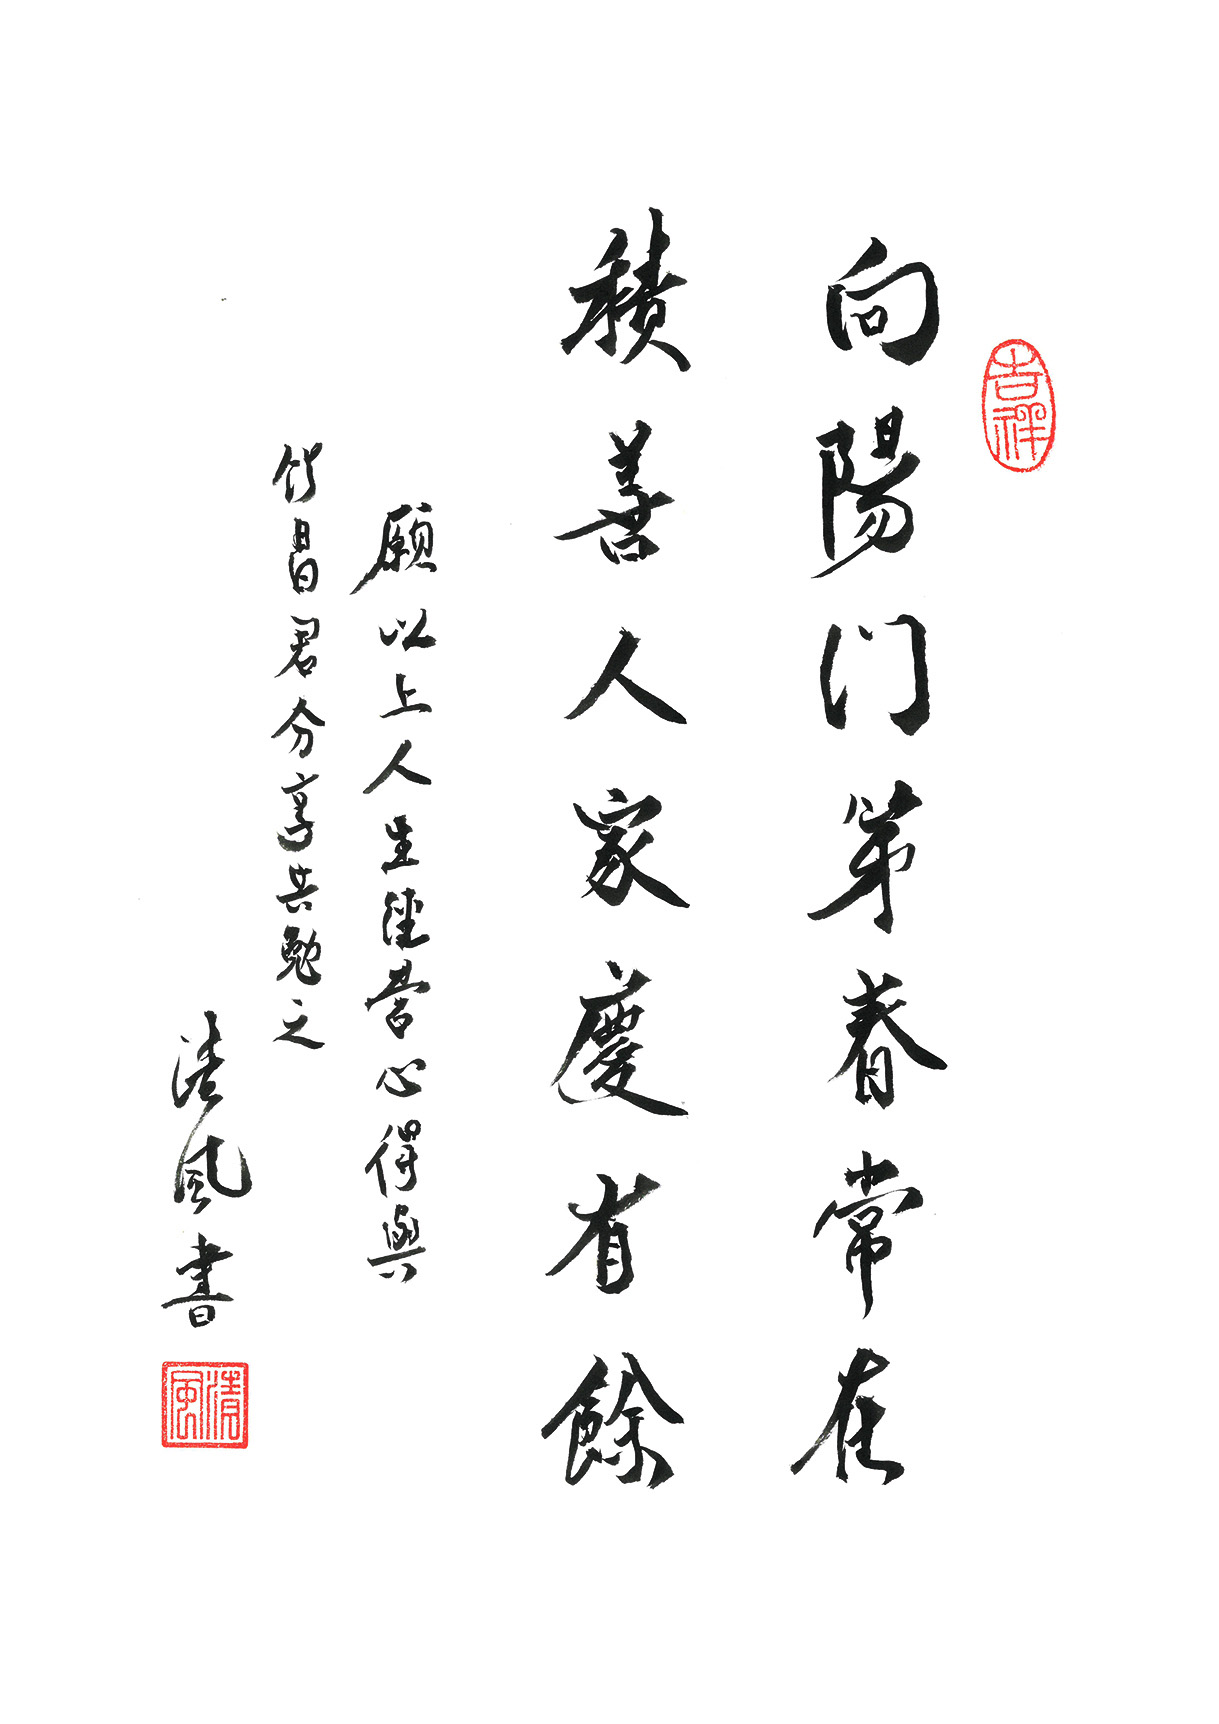 吉祥
向陽門第春常在
積善人家慶有餘
願以上人生經營心得與
昌君分享共勉之
清風書
清風